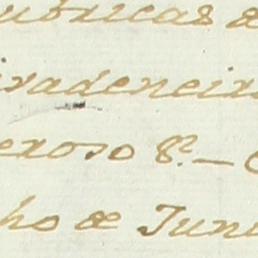 ubricas de
iradeneira
exoso 8.º —
ho de Juni